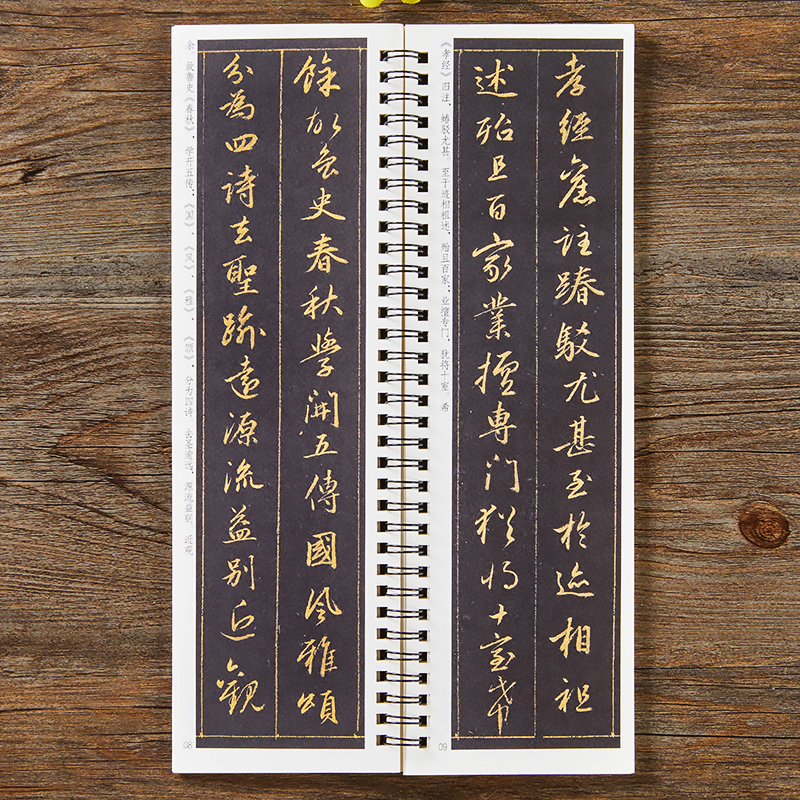 餘故魯史春秋學開五傳國風雅頌
分為四詩去聖踰遠源流益別近觀
余。故鲁史《春秋》，学开五传；《国》、《风》、《雅》、《颂》，分为四诗。去圣逾远，源流益别。近观
08
孝經舊註踳駁尤甚至於迹相祖
述殆且百家業擅專門猶將十室希
《孝经》旧注，踳驳尤甚。至于迹相祖述，殆且百家；业擅专门，犹将十室。希
09